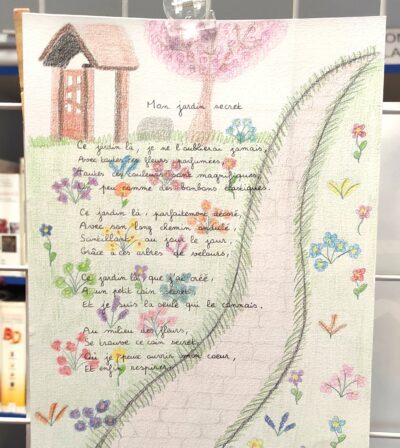 Mon jardin secret
Ce jardin là, je ne l'oublierai jamais,
Avec toutes ces fleurs parfumées,
Toutes ces couleurs sont magnifiques,
Un peu comme des bonbons élastiques.
Ce jardin là, parfaitement décoré,
Avec son long chemin ondulé,
Scintillant au jour le jour,
Grâce a ces arbres de velours,
Ce jardin là, que j'ai créé,
A un petit coin secret
Et je suis la seule qui le connais.
Au milieu des fleurs,
Se trouve ce coin secret,
Où je peux ouvrir mon coeur,
Et enfin respirer,